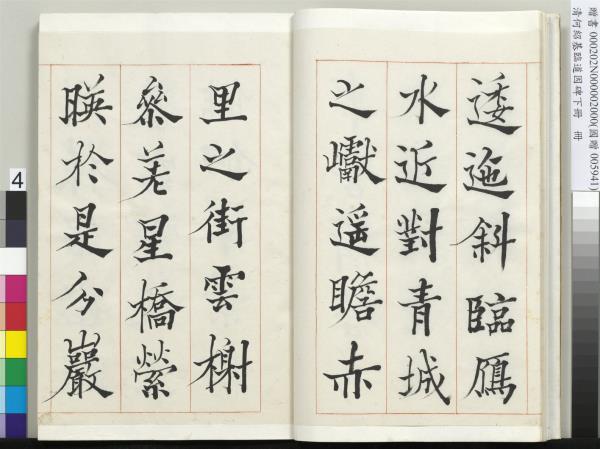 贈書 000202N000002000(國贈 005941)
清何紹基臨道因碑下冊 冊
逶迤斜臨鴈
水近對青城
之巘遥瞻赤
里之街雲榭
參差星橋縈
暎於是分巖
4